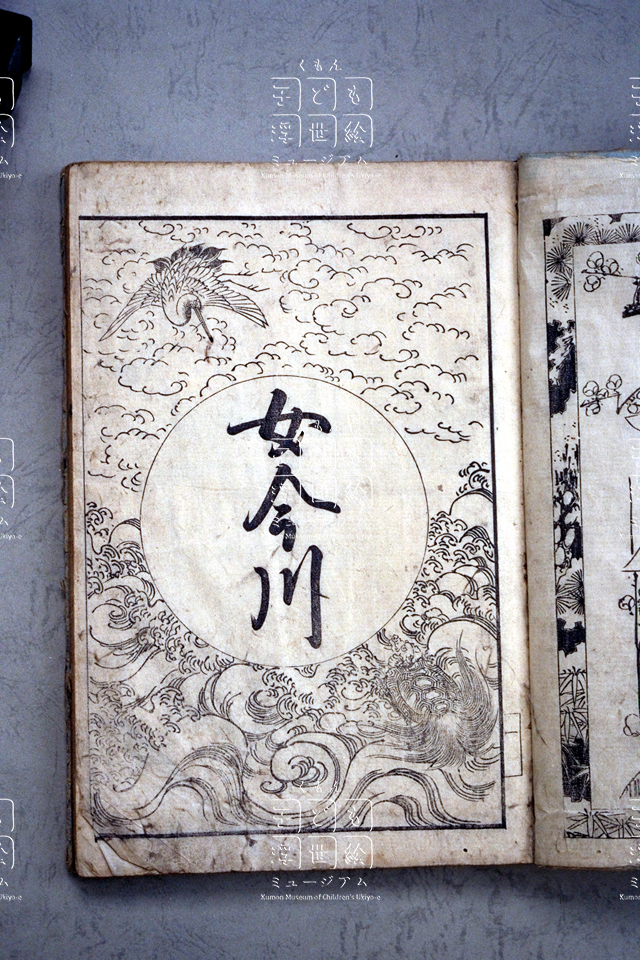 くもん
子ども
浮世絵
ミュージアム
Kumon Museum of Children's Ukiyo-e
女今川
くもん
子ども
浮世絵
ミュージアム
Kumon Museum of Children's Ukiyo-e